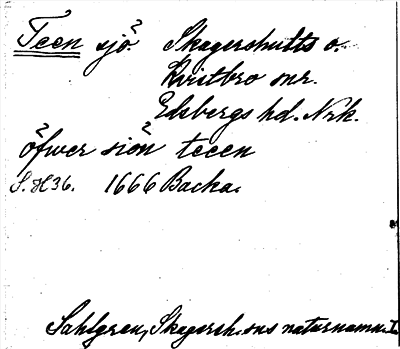 Teen sjö. Skagershults o.
Kvistbro snr.
Edsbergs hd. Nrk.
öfwer siön teeen
S. H 36. 1666 Backa.
Sahlgren, Skagersh. sns naturnamn.